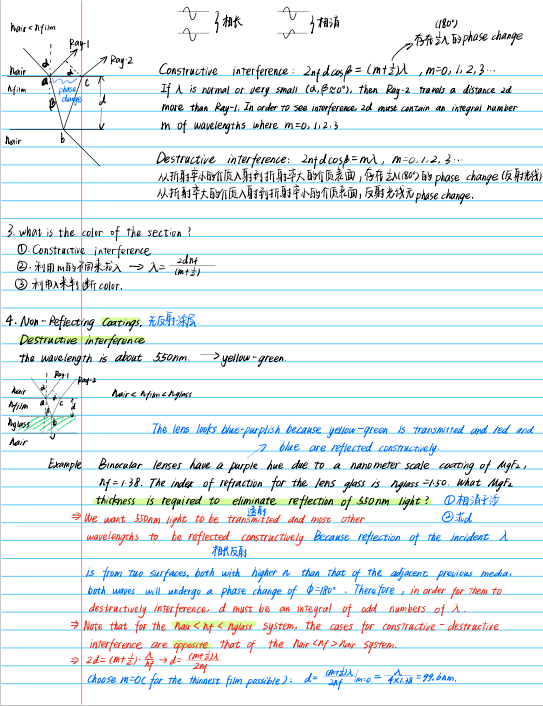 nair < nfilm
相长
相消
(180°)
存在½λ的phase change
Ray-1
Ray-2
nair
a
c
nfilm
phase change
β
d
b
nair
Constructive interference: 2nfdcosβ = (m+½)λ , m=0, 1, 2, 3···
If λ is normal or very small (α,β≈0°), then Ray-2 travels a distance 2d
more than Ray-1. In order to see interference, 2d must contain an integral number
m of wavelengths where m=0, 1, 2, 3
Destructive interference: 2nfdcosβ = mλ, m=0, 1, 2, 3 ···
从折射率小的介质入射到折射率大的介质表面, 存在½λ(180°)的phase change (反射光线)
从折射率大的介质入射到折射率小的介质表面, 反射光线无phase change.
3. what is the color of the section?
①. Constructive interference
②. 利用m的不同来求λ → λ = 2dnf/(m+½)
③ 利用λ来判断color.
4. Non-Reflecting Coatings. 无反射涂层.
Destructive interference
the wavelength is about 550nm. → yellow-green.
Ray-1
Ray-2
nair
nfilm
nglass
nair
a
c
d
b
nair < nfilm < nglass
The lens looks blue-purplish because yellow-green is transmitted and red and
blue are reflected constructively.
Example Binocular lenses have a purple hue due to a nanometer scale coating of MgF₂,
nf = 1.38. The index of refraction for the lens glass is nglass = 1.50. What MgF₂
thickness is required to eliminate reflection of 550nm light? ①相消干涉
透射
②求d
⇒ We want 550nm light to be transmitted and most other
wavelengths to be reflected constructively. Because reflection of the incident λ
相长反射
is from two surfaces, both with higher n than that of the adjacent previous media,
both waves will undergo a phase change of Φ=180°. Therefore, in order for them to
destructively interference, d must be an integral of odd numbers of λ.
⇒ Note that for the nair < nf < nglass system, the cases for constructive - destructive
interference are opposite that of the nair < nf > nair system.
⇒ 2d = (m+½)·λ/nf → d = (m+½)λ/2nf
Choose m=0 (for the thinnest film possible): d = (m+½)λ/2nf |m=0 = λ/4×1.38 = 99.6nm.